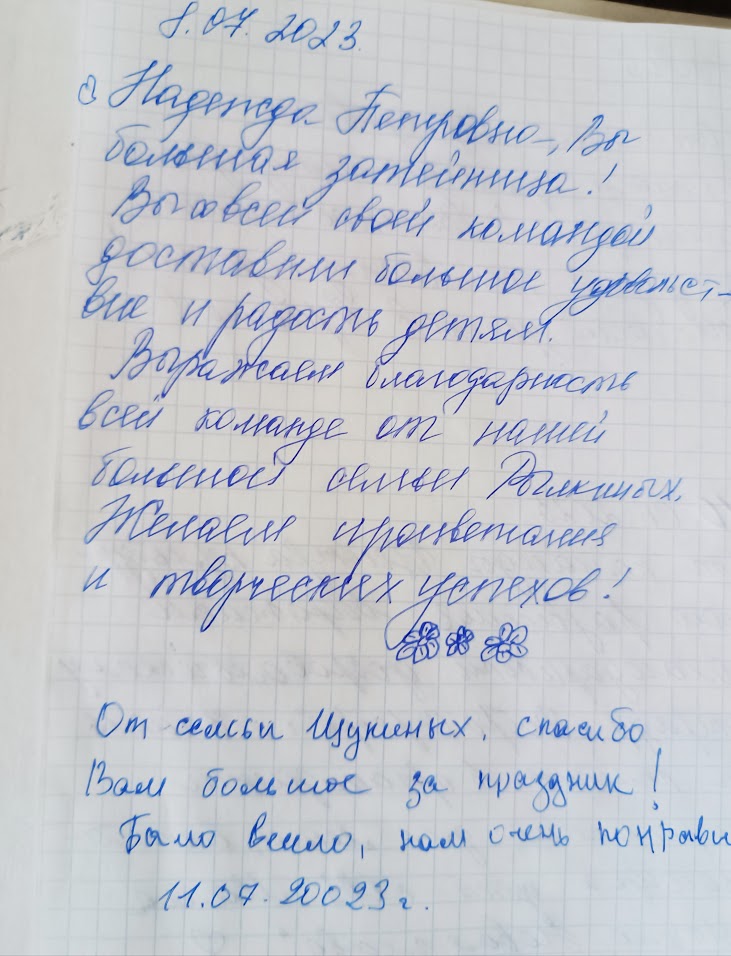 8.07.2023.
Надежда Петровна, Вы
большая затейница!
Вы со всей своей командой
доставили большое удовольст-
вие и радость детям.
Выражаем благодарность
всей команде от нашей
большой семьи Рылкиных.
Желаем процветания
и творческих успехов!
От семьи Щукиных, спасибо
Вам большое за праздник!
Было весло, нам очень понрави
11.07.20023г.